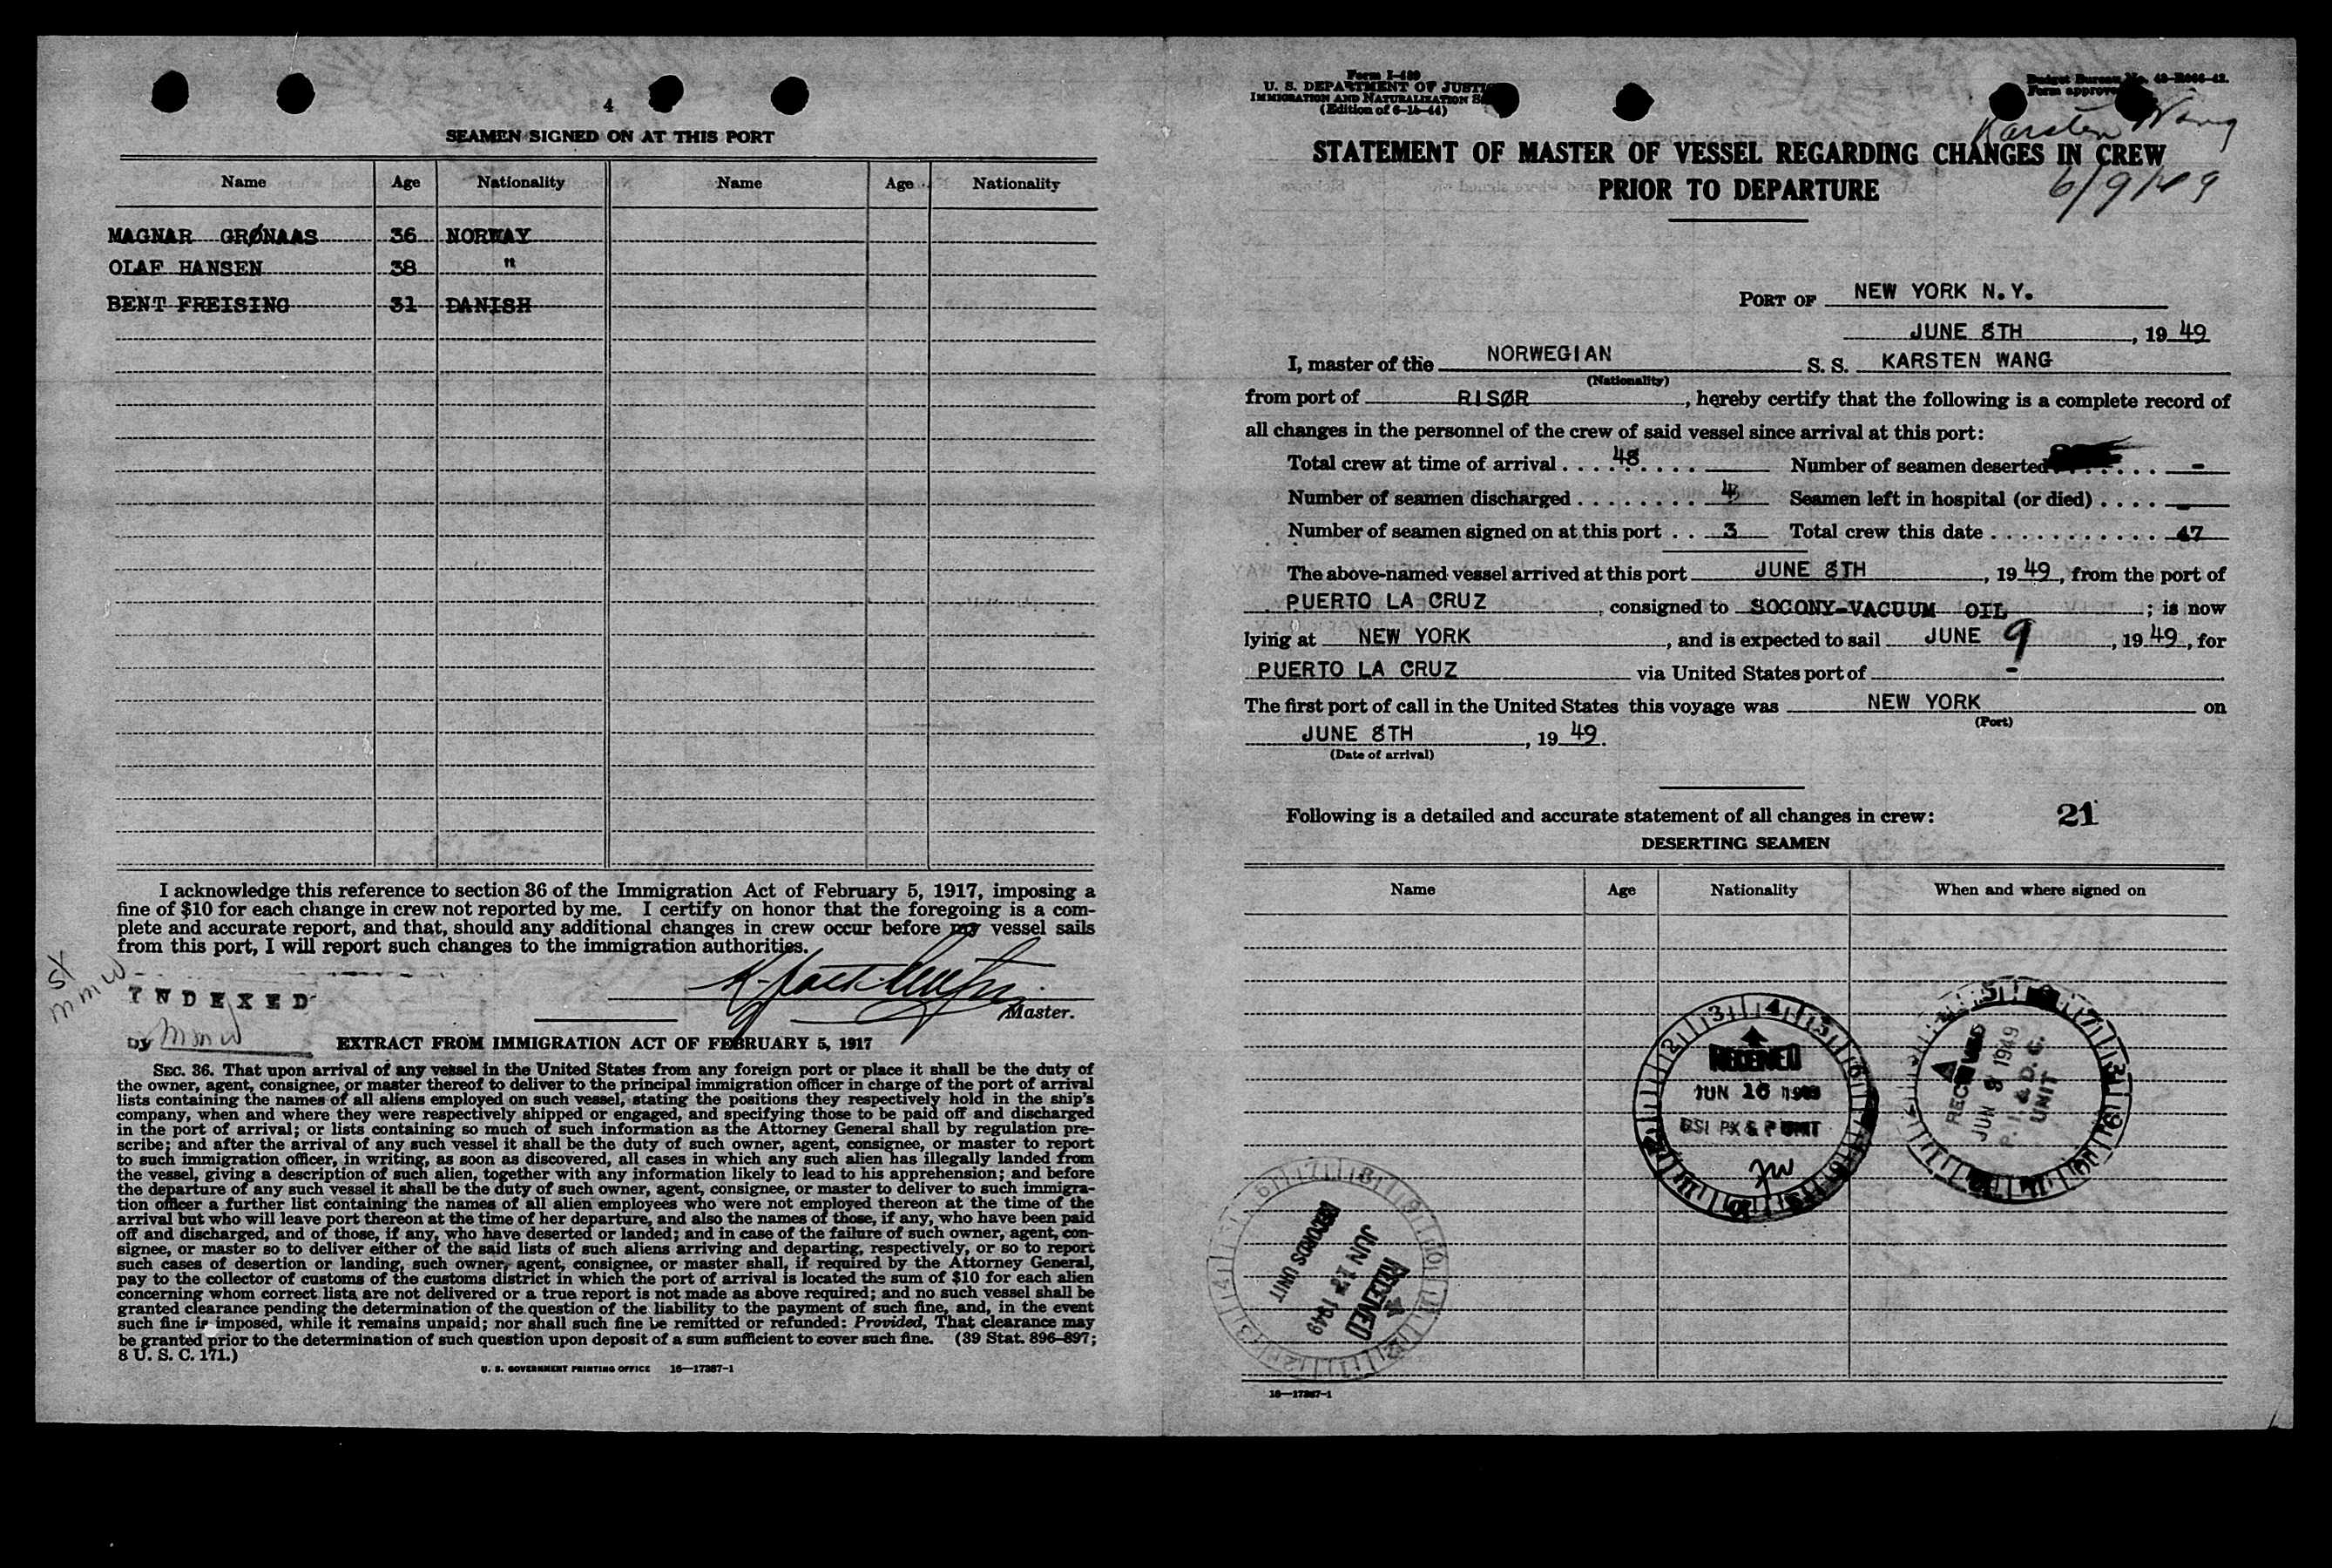 4
SEAMEN SIGNED ON AT THIS PORT
Name Age Nationality Name Age Nationality
MAGNAR GRØNAAS 36 NORWAY
OLAF HANSEN 38 "
BENT FREISING 31 DANISH
I acknowledge this reference to section 36 of the Immigration Act of February 5, 1917, imposing a
fine of $10 for each change in crew not reported by me. I certify on honor that the foregoing is a com-
plete and accurate report, and that, should any additional changes in crew occur before my vessel sails
from this port, I will report such changes to the immigration authorities.
INDEXED
Master.
by
EXTRACT FROM IMMIGRATION ACT OF FEBRUARY 5, 1917
SEC. 36. That upon arrival of any vessel in the United States from any foreign port or place it shall be the duty of
the owner, agent, consignee, or master thereof to deliver to the principal immigration officer in charge of the port of arrival
lists containing the names of all aliens employed on such vessel, stating the positions they respectively hold in the ship's
company, when and where they were respectively shipped or engaged, and specifying those to be paid off and discharged
in the port of arrival; or lists containing so much of such information as the Attorney General shall by regulation pre-
scribe; and after the arrival of any such vessel it shall be the duty of such owner, agent, consignee, or master to report
to such immigration officer, in writing, as soon as discovered, all cases in which any such alien has illegally landed from
the vessel, giving a description of such alien, together with any information likely to lead to his apprehension; and before
the departure of any such vessel it shall be the duty of such owner, agent, consignee, or master to deliver to such immigra-
tion officer a further list containing the names of all alien employees who were not employed thereon at the time of the
arrival but who will leave port thereon at the time of her departure, and also the names of those, if any, who have been paid
off and discharged, and of those, if any, who have deserted or landed; and in case of the failure of such owner, agent, con-
signee, or master so to deliver either of the said lists of such aliens arriving and departing, respectively, or so to report
such cases of desertion or landing, such owner, agent, consignee, or master shall, if required by the Attorney General,
pay to the collector of customs of the customs district in which the port of arrival is located the sum of $10 for each alien
concerning whom correct lists are not delivered or a true report is not made as above required; and no such vessel shall be
granted clearance pending the determination of the question of the liability to the payment of such fine, and, in the event
such fine is imposed, while it remains unpaid; nor shall such fine be remitted or refunded: Provided, That clearance may
be granted prior to the determination of such question upon deposit of a sum sufficient to cover such fine. (39 Stat. 896–897;
8 U. S. C. 171.)
U. S. GOVERNMENT PRINTING OFFICE 16—17387-1
Form I-489
U. S. DEPARTMENT OF JUSTI
IMMIGRATION AND NATURALIZATION S
(Edition of 6-15-44)
Budget Bureau No. 43-R066-42.
Form approve
Karsten Wang
STATEMENT OF MASTER OF VESSEL REGARDING CHANGES IN CREW
PRIOR TO DEPARTURE
6/9/49
PORT OF NEW YORK N.Y.
JUNE 8TH, 19 49
I, master of the NORWEGIAN S. S. KARSTEN WANG
(Nationality)
from port of RISØR, hereby certify that the following is a complete record of
all changes in the personnel of the crew of said vessel since arrival at this port:
Total crew at time of arrival .... 48 .... Number of seamen deserted ....... -
Number of seamen discharged ........ 4 Seamen left in hospital (or died) .... -
Number of seamen signed on at this port .. 3 Total crew this date ........... 47
The above-named vessel arrived at this port JUNE 8TH, 19 49, from the port of
PUERTO LA CRUZ, consigned to SOCONY-VACUUM OIL; is now
lying at NEW YORK, and is expected to sail JUNE 9, 19 49, for
PUERTO LA CRUZ via United States port of -
The first port of call in the United States this voyage was NEW YORK on
(Port)
JUNE 8TH, 19 49.
(Date of arrival)
Following is a detailed and accurate statement of all changes in crew: 21
DESERTING SEAMEN
Name Age Nationality When and where signed on
RECEIVED
JUN 16 1949
BSI PX & P UNIT
RECEIVED
JUN 9 1949
P. I. & D. C.
UNIT
RECEIVED
JUN 17 1949
RECORDS UNIT
16—17387-1